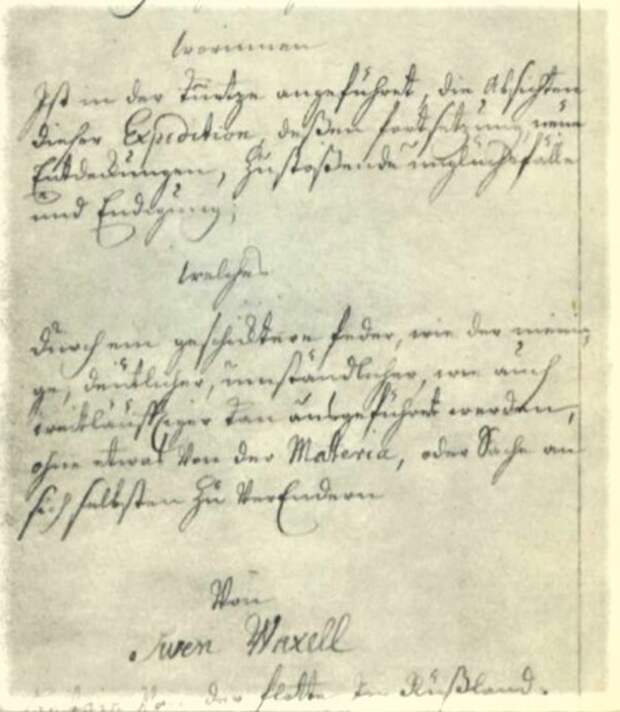 worinnen
Ist in der Kürtze angeführet, die Absichten
dießer Expedition, deßen fortsetzung, neüe
Entdeckungen, Zustoßende unglücksfälle
und Endigung;
welches
durch ein geschicktere feder, wie der meini,
ge, deütlicher, ümständlicher, wie auch
weitläufftiger kan ausgeführet werden,
ohne etwas Von der Materia, oder Sache an
sich selbsten zu VerEndern
Von
Swen Waxell
der flotte in Rüßland.